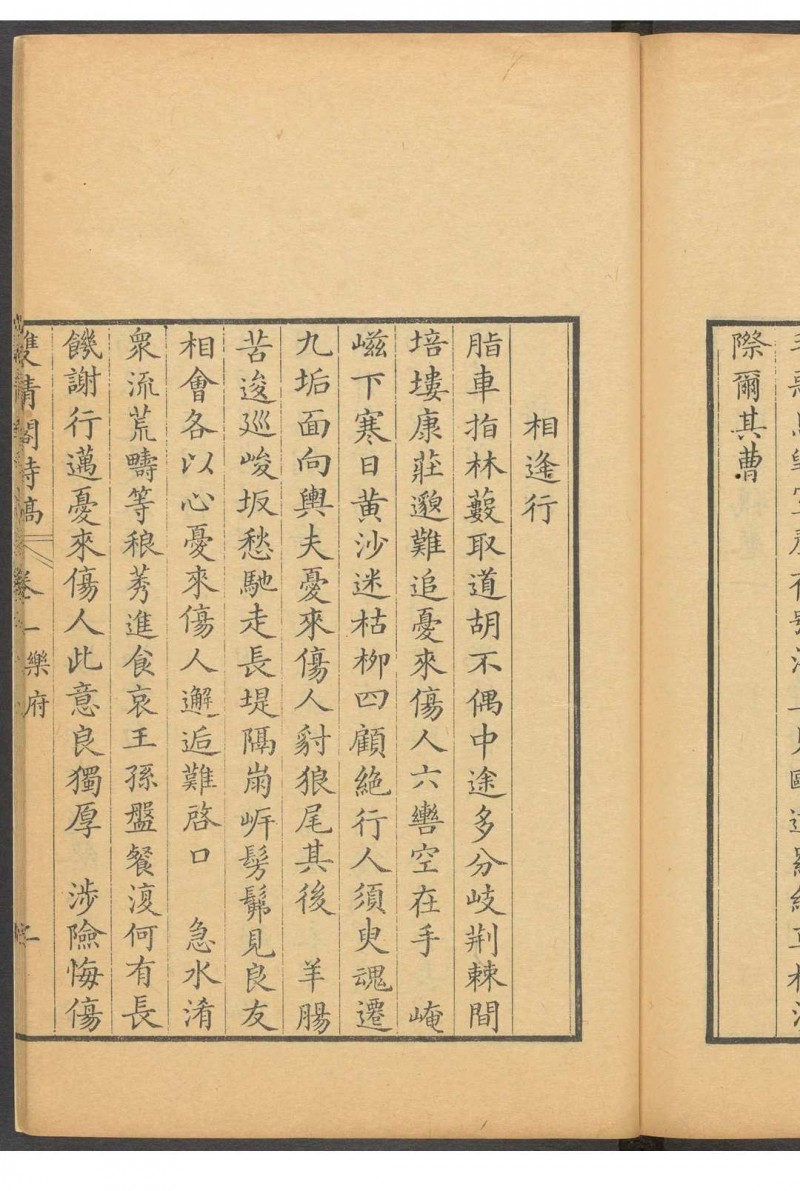 際爾其曹
相逢行
脂車指林藪取道胡不偶中途多分岐荆棘間
培塿康莊邈難追憂來傷人六轡空在手　崦
嵫下寒日黃沙迷枯柳四顧絶行人須臾魂遷
九垢面向輿夫憂來傷人豺狼尾其後　羊腸
苦逡巡峻坂愁馳走長堤隔崩岈髣髴見良友
相會各以心憂來傷人邂逅難啓口　急水淆
衆流荒疇等稂莠進食哀王孫盤餐復何有長
饑謝行邁憂來傷人此意良獨厚　涉險悔傷
雙清閣詩稿　卷一樂府